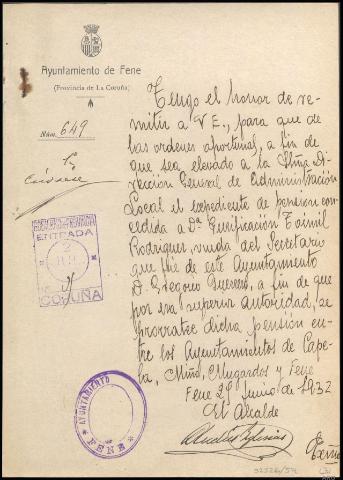 Ayuntamiento de Fene
(Provincia de La Coruña)
Núm. 649
Tengo el honor de re-
mitir a V.E., para que de
las ordenes oportunas, a fin de
que sea elevado a la Iltma Di-
rección General de Administración
Local el expediente de pension con-
cedida a Dª Purificación Toimil
Rodriguez, viuda del Secretario
que fué de este Ayuntamiento
D. Gregorio Guerrero, a fin de que
por esa superior autoridad, se
prorratee dicha pensión en-
tre los Ayuntamientos de Cape-
la, Miño, Mugardos y Fene
Fene 29 junio de 1932
El Alcalde
ENTRADA
2
JUL
CORUÑA
AYUNTAMIENTO
FENE